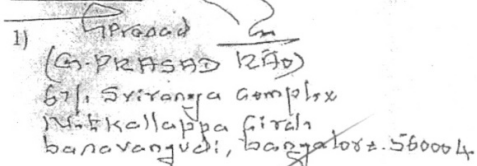 1) GPrasad
(G. PRASAD RAO)
67/1 Sriranga Complex
Circle
banavangudi, bangalore. 560004